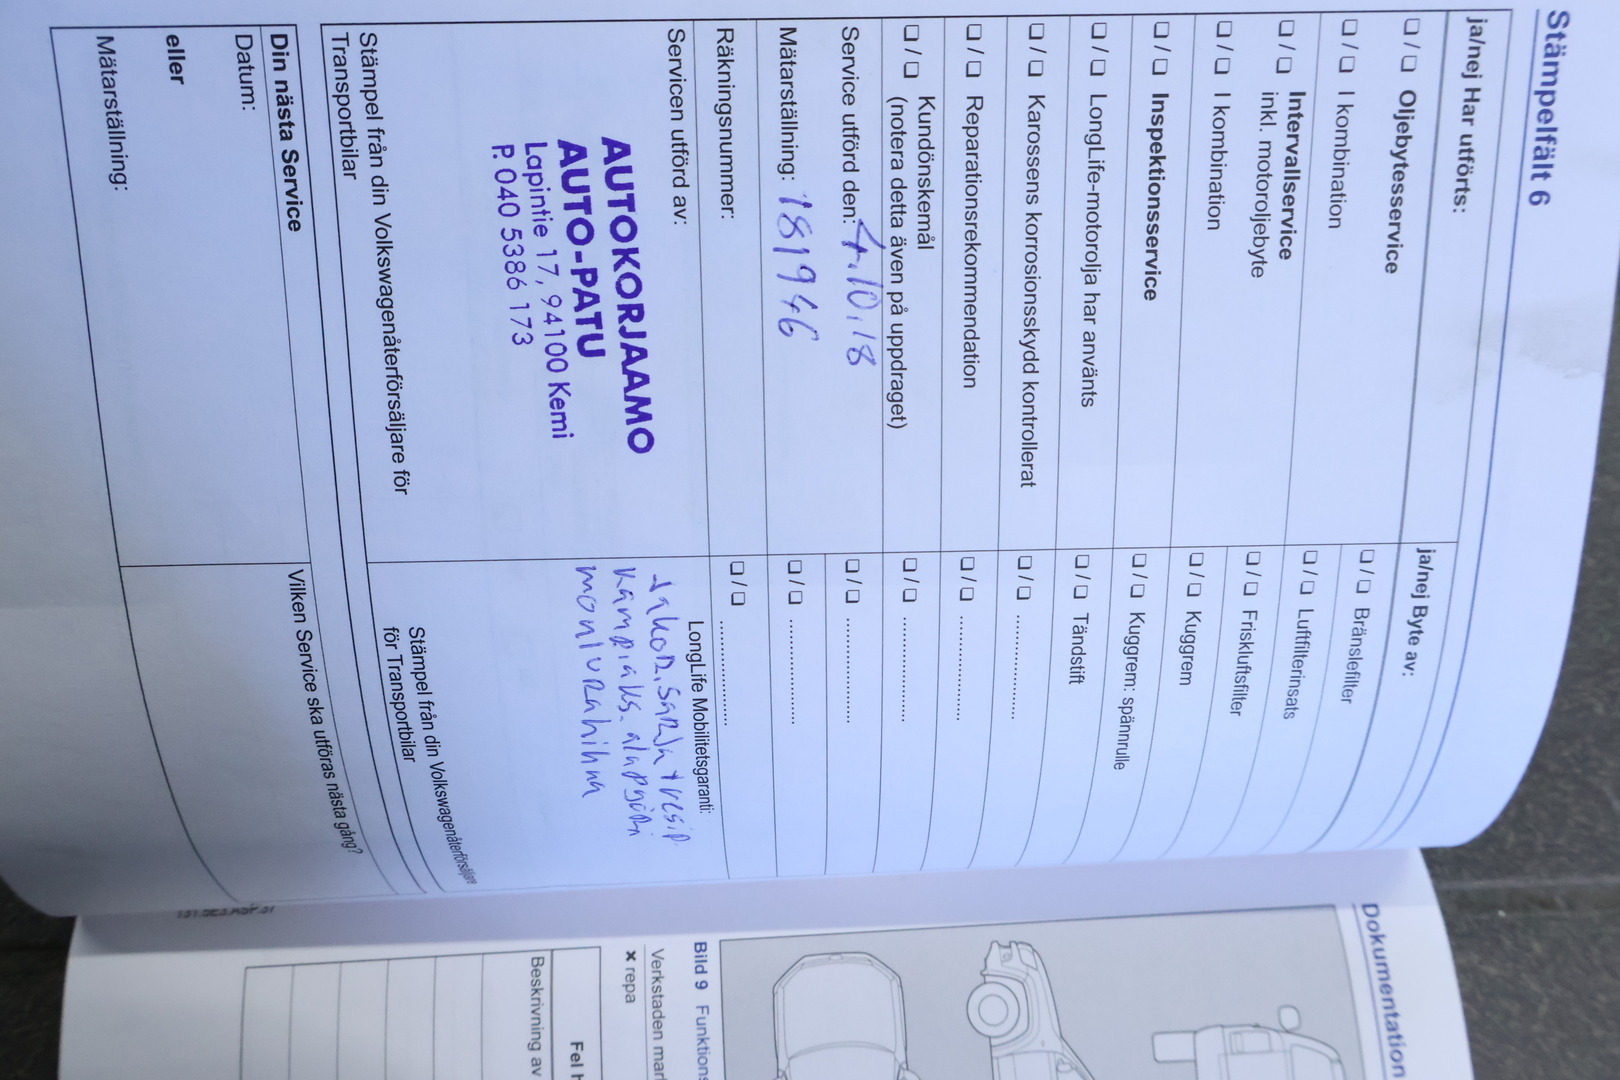 Stämpelfält 6
ja/nej Har utförts:
❑ / ❑ Oljebytesservice
❑ / ❑ I kombination
❑ / ❑ Intervallservice
inkl. motoroljebyte
❑ / ❑ I kombination
❑ / ❑ Inspektionsservice
❑ / ❑ LongLife-motorolja har använts
❑ / ❑ Karossens korrosionsskydd kontrollerat
❑ / ❑ Reparationsrekommendation
❑ / ❑ Kundönskemål
(notera detta även på uppdraget)
Service utförd den: 4.10.18
Mätarställning:
Räkningsnummer:
Servicen utförd av:
AUTOKORJAAMO
AUTO-PATU
Lapintie 17, 94100 Kemi
P. 040 5386 173
Stämpel från din Volkswagenåterförsäljare för
Transportbilar
ja/nej Byte av:
❑ / ❑ Bränslefilter
❑ / ❑ Luftfilterinsats
❑ / ❑ Friskluftsfilter
❑ / ❑ Kuggrem
❑ / ❑ Kuggrem: spännrulle
❑ / ❑ Tändstift
❑ / ❑ ................
❑ / ❑ ................
❑ / ❑ ................
❑ / ❑ ................
❑ / ❑ ................
❑ / ❑ ................
LongLife Mobilitetsgaranti:
Jakop. sarja + vesip.
kampiaks. alapyörä
moniurahihna
Stämpel från din Volkswagenåterförsäljare
för Transportbilar
Din nästa Service
Datum:
eller
Mätarställning:
Vilken Service ska utföras nästa gång?
Dokumentation
Bild 9 Funktions
Verkstaden mar
x repa
Fel h
Beskrivning av